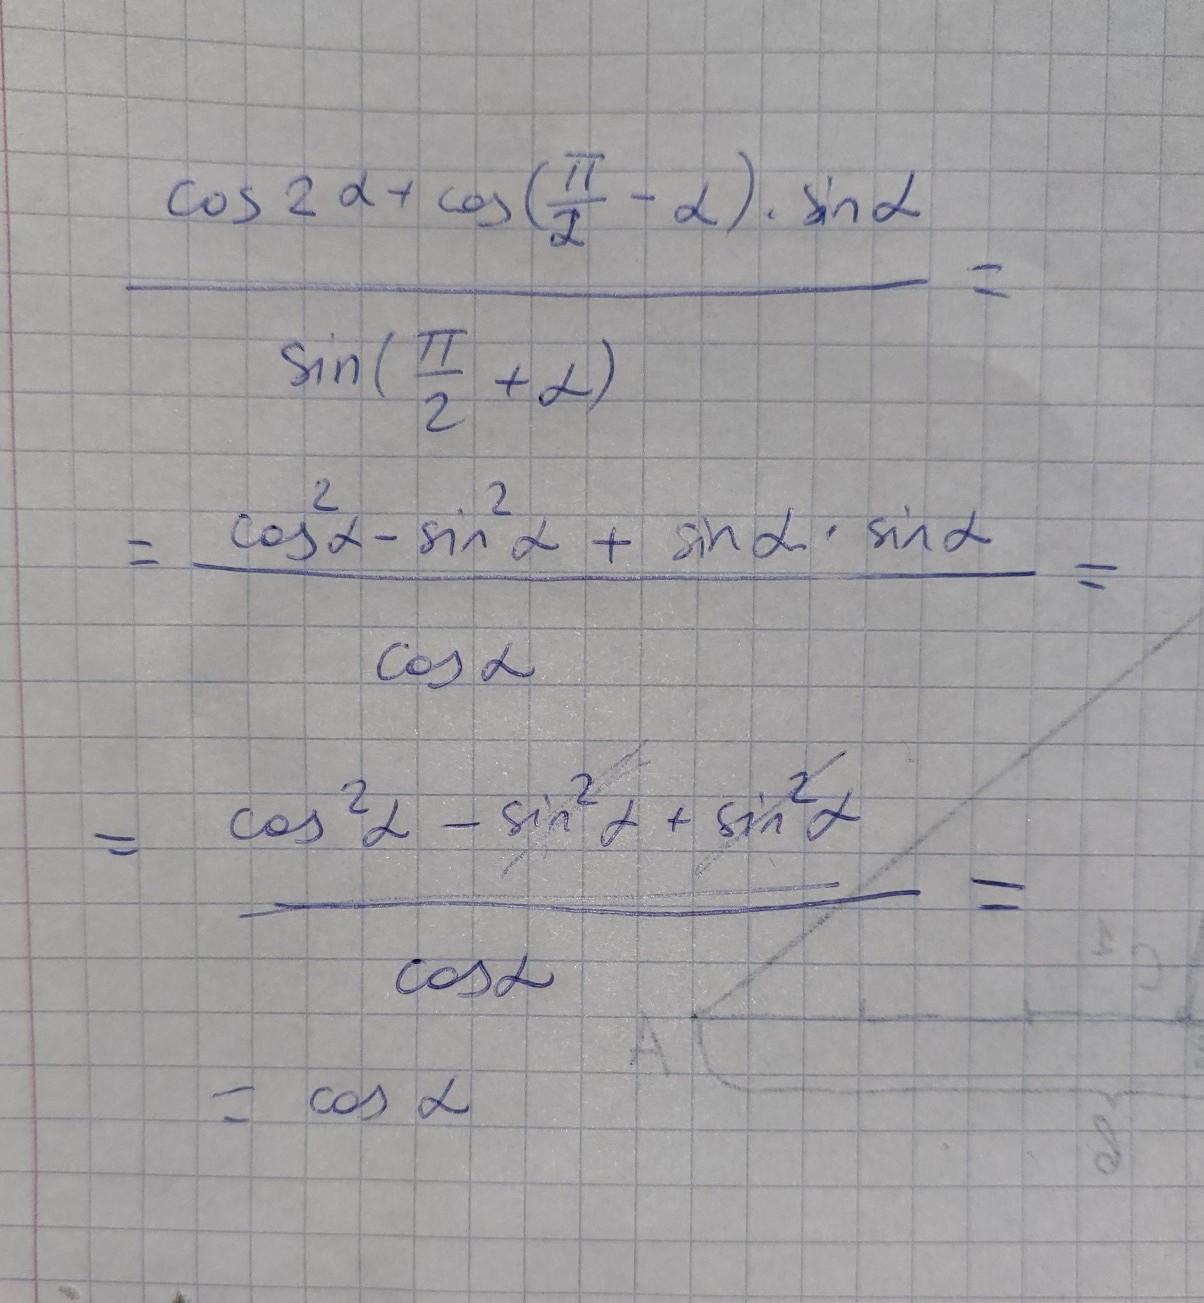 cos 2α + cos(π/2 - α) · sin α
=
sin(π/2 + α)
= cos²α - sin²α + sin α · sin α =
cos α
= cos²α - sin²α + sin²α =
cos α
A
= cos α